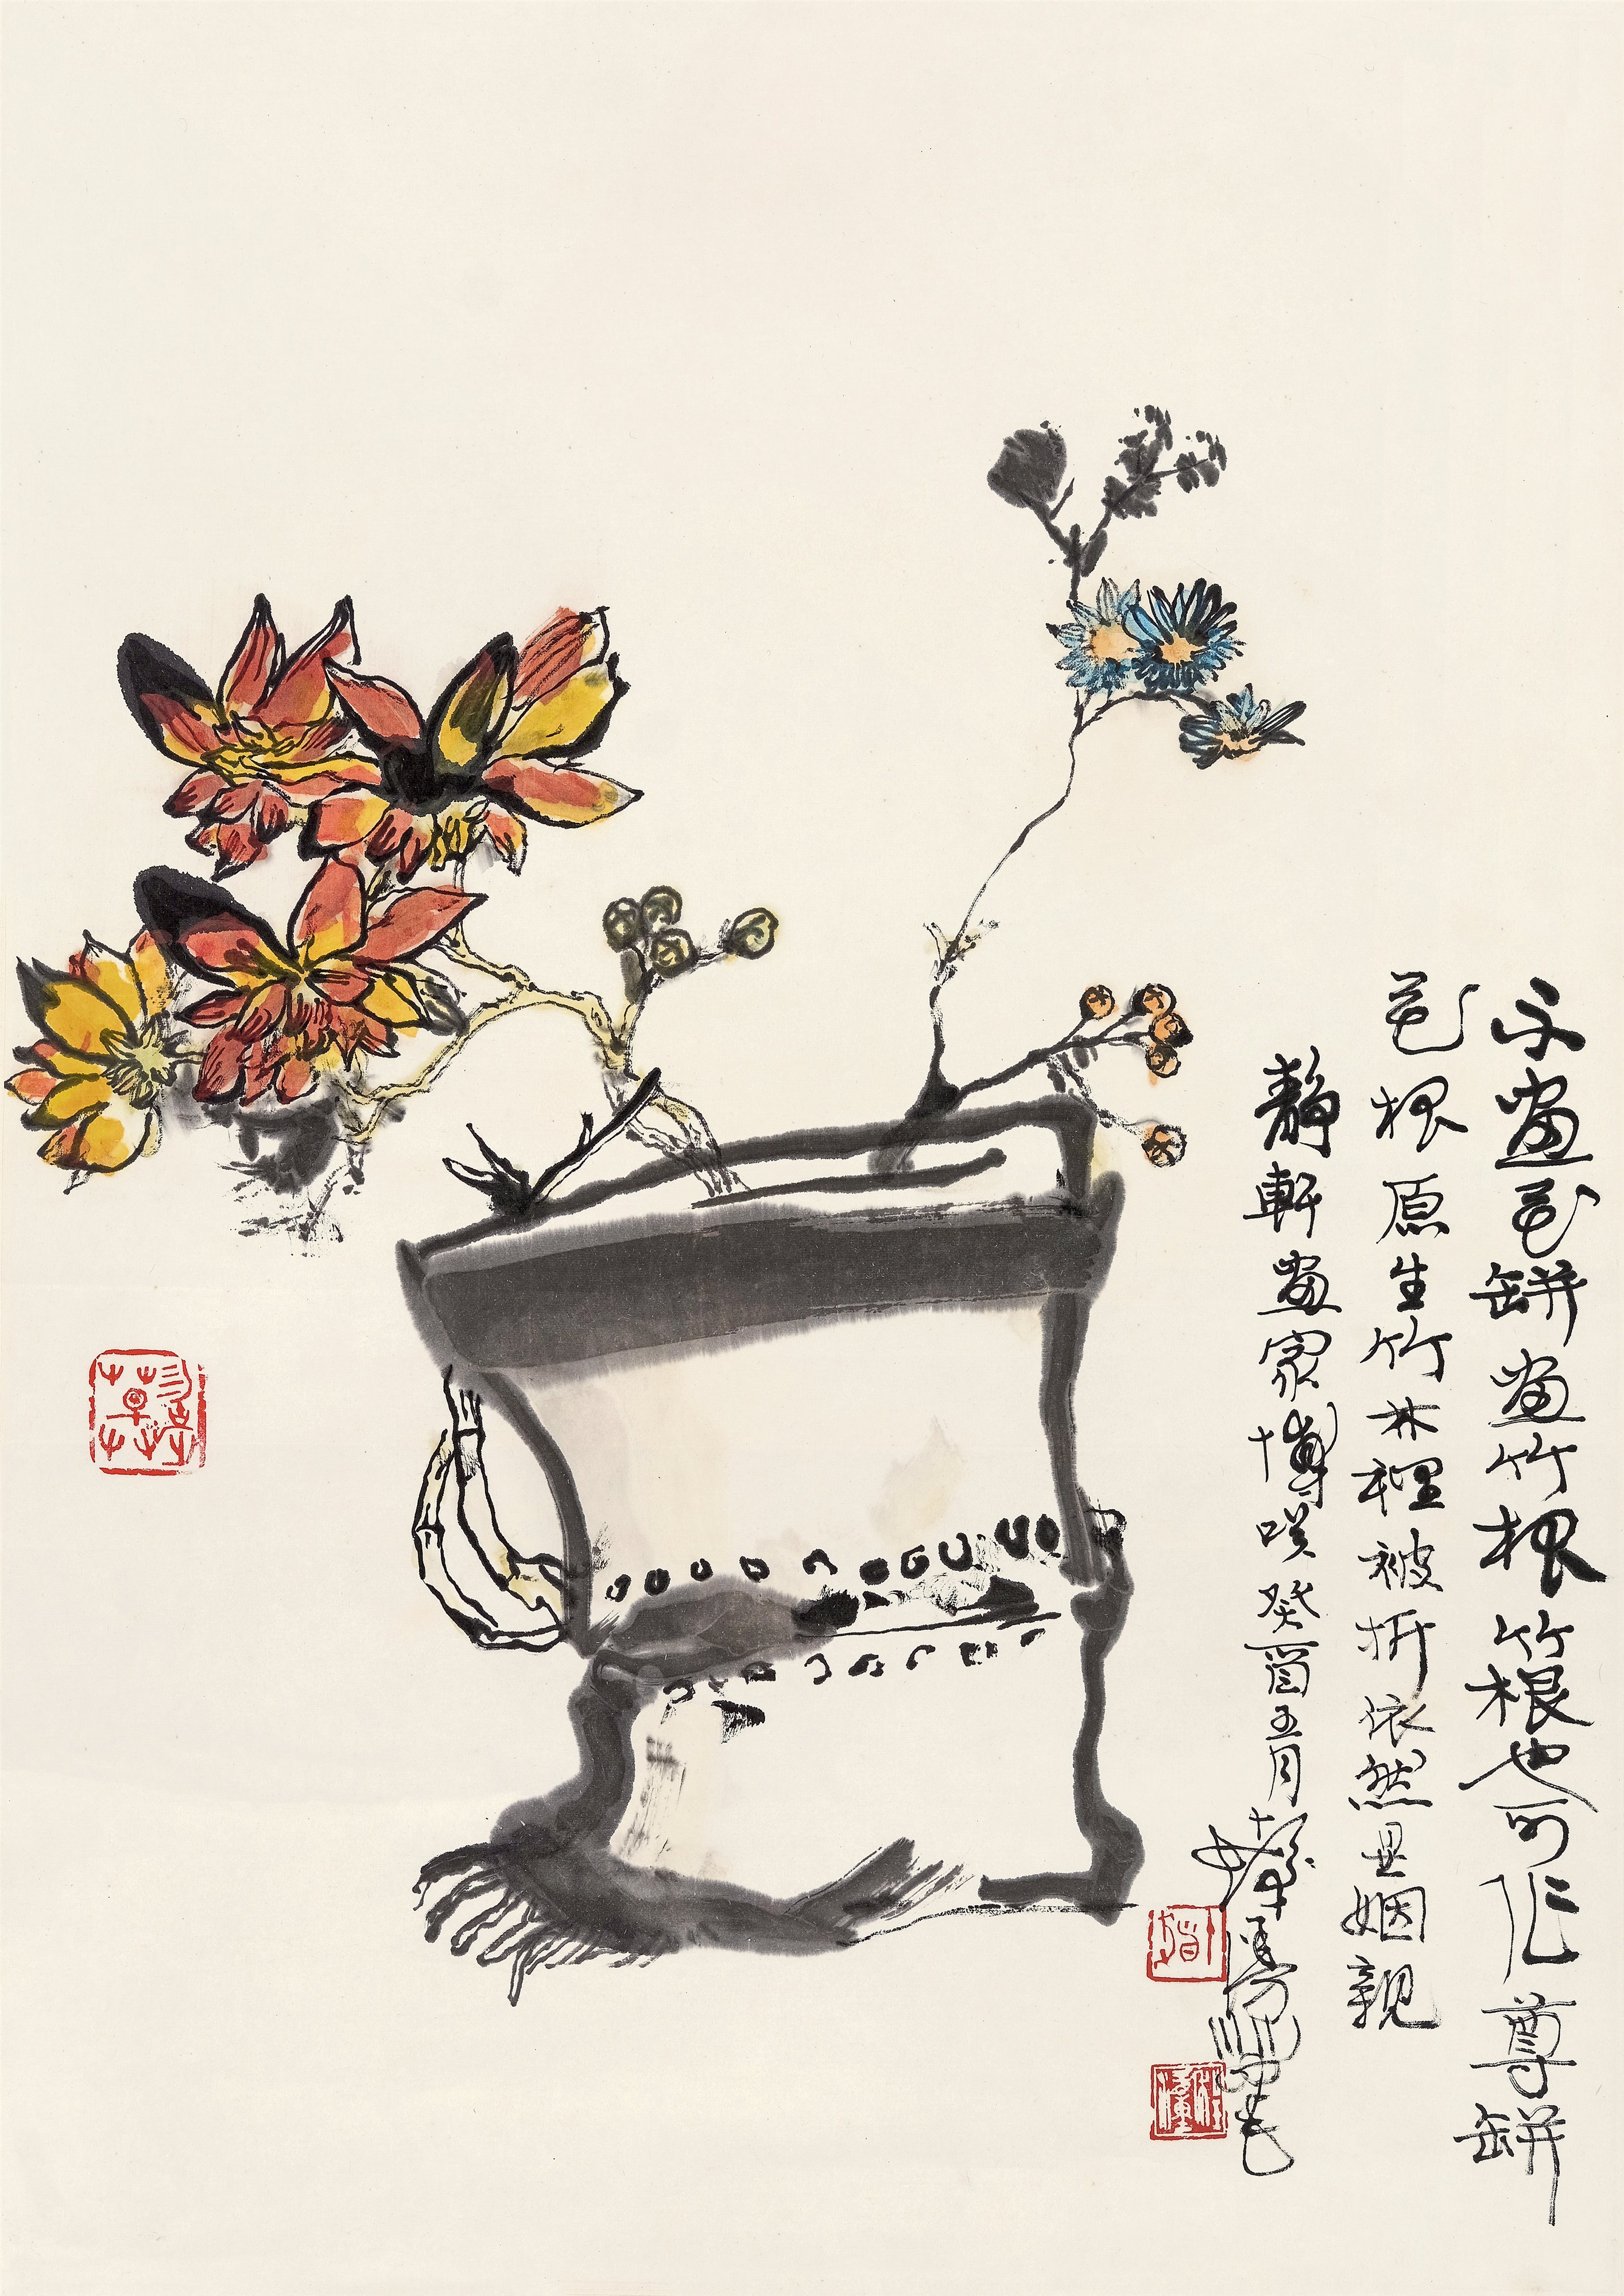 不画花缾画竹根竹根也可作尊缾
花根原生竹林裡被折依然是姻親
靜軒画家博咲癸酉五月